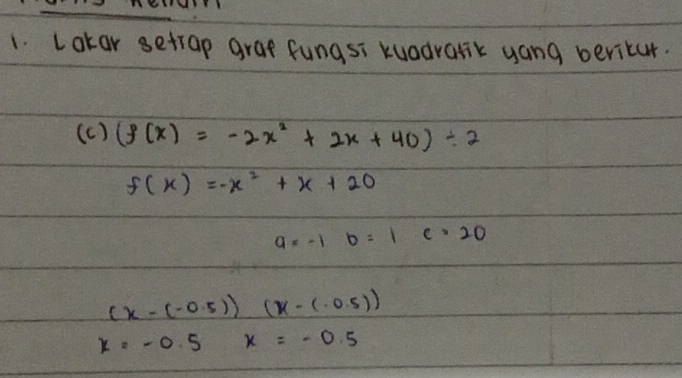 1. Lakar setiap graf fungsi kuadratik yang berikut.
(c) (f(x) = -2x² + 2x + 40) ÷ 2
f(x) = -x² + x + 20
a = -1 b = 1 c = 20
(x - (-0.5)) (x - (-0.5))
x = -0.5 x = -0.5